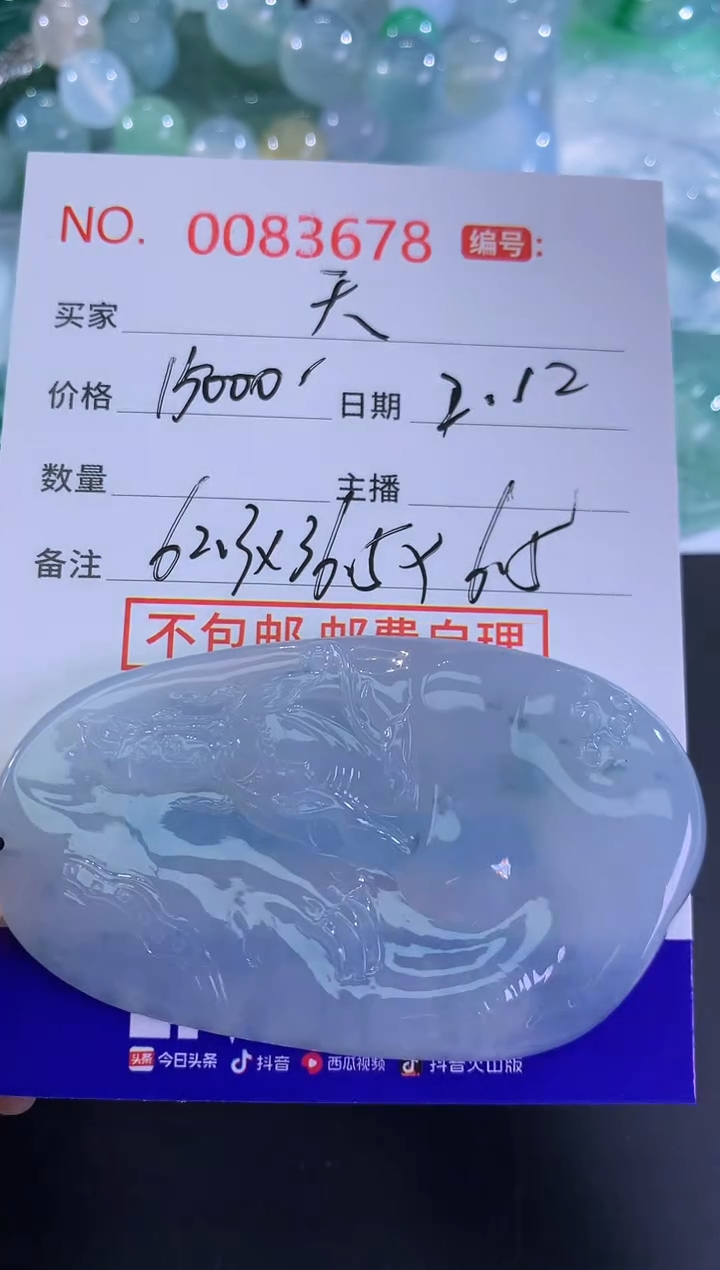 NO. 0083678 编号:
买家 天
价格 15000 日期 2.12
数量 主播
备注 62.3x36.5x6.5
不包邮 邮费自理
头条 今日头条 抖音 西瓜视频 抖音火山版